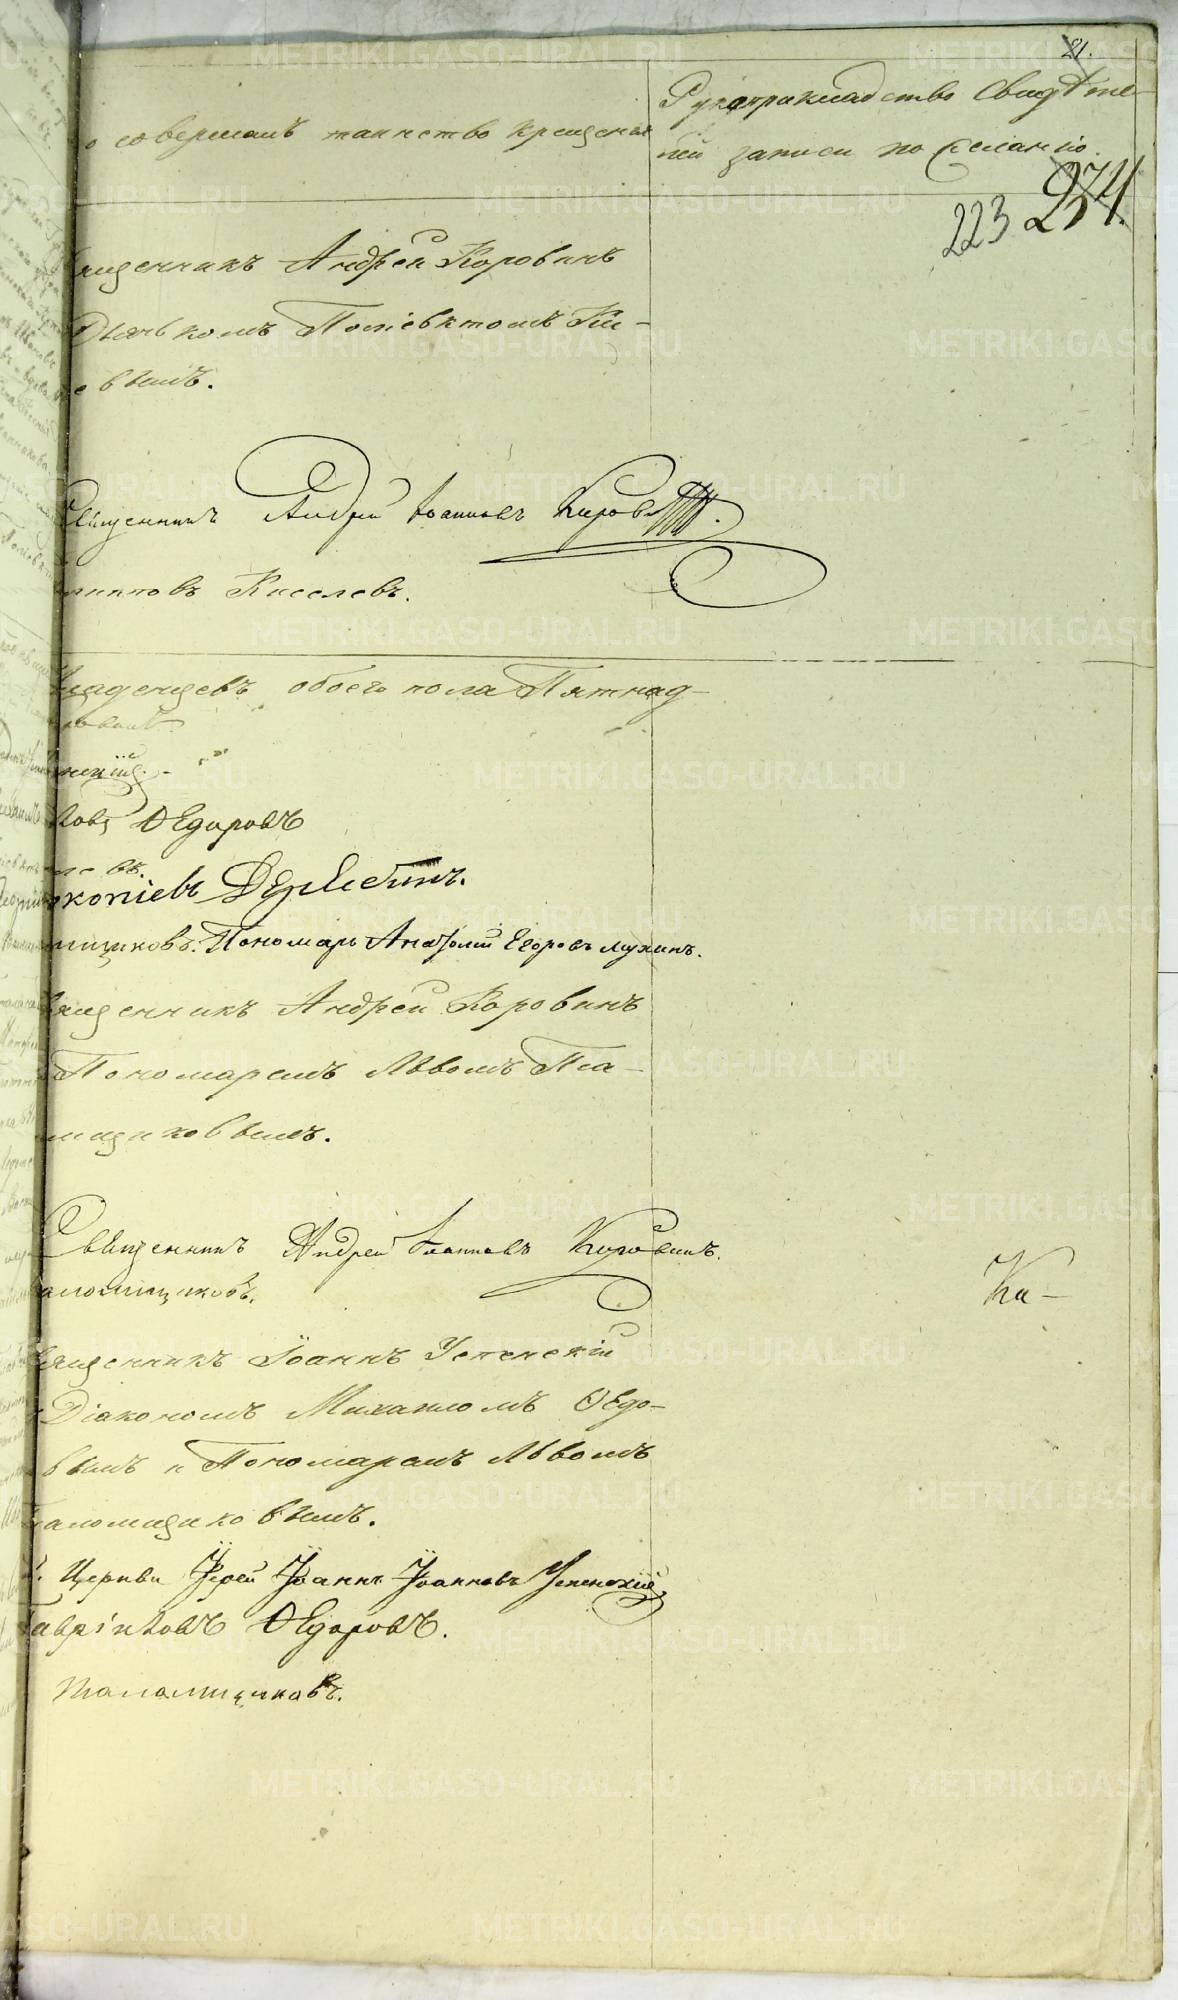 21.
о совершалъ таинство крещенія
Рукоприкладство свидѣте-
лей записи по желанію.
223 274.
ященникъ Андрей Коровинъ
Дьячькомъ Полієвктомъ Ки-
евымъ.
Священникъ Андрей Іоанновъ Коровинъ.
липповъ Киселевъ.
младенцевъ обоего пола Пятнад-
ловъ Ѳедоровъ
окопіевъ Дерябинъ.
мщиковъ. Пономарь Анатолій Егоровъ Мухинъ.
вященникъ Андрей Коровинъ
Пономаремъ Львомъ Пала-
мщиковымъ.
Священникъ Андрей Іоанновъ Коровинъ.
аломщиковъ.
Ка-
вященникъ Іоаннъ Успенскій
Діакономъ Михаиломъ Ѳедо-
вымъ и Пономаремъ Львомъ
Паломщиковымъ.
Церкви Іерей Іоаннъ Іоанновъ Успенскій
Гавріиловъ Ѳедоровъ.
Паломщиковъ.
METRIKI.GASO-URAL.RU